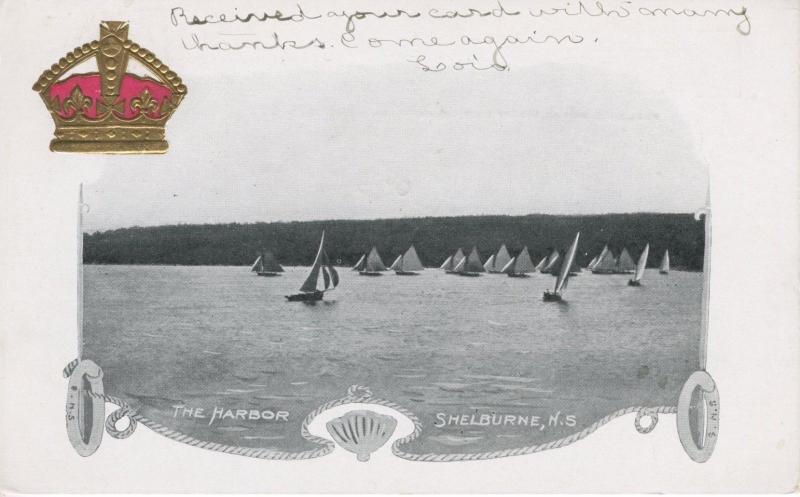 Received your card with many
thanks. Come again.
Lois.
THE HARBOR SHELBURNE, N.S